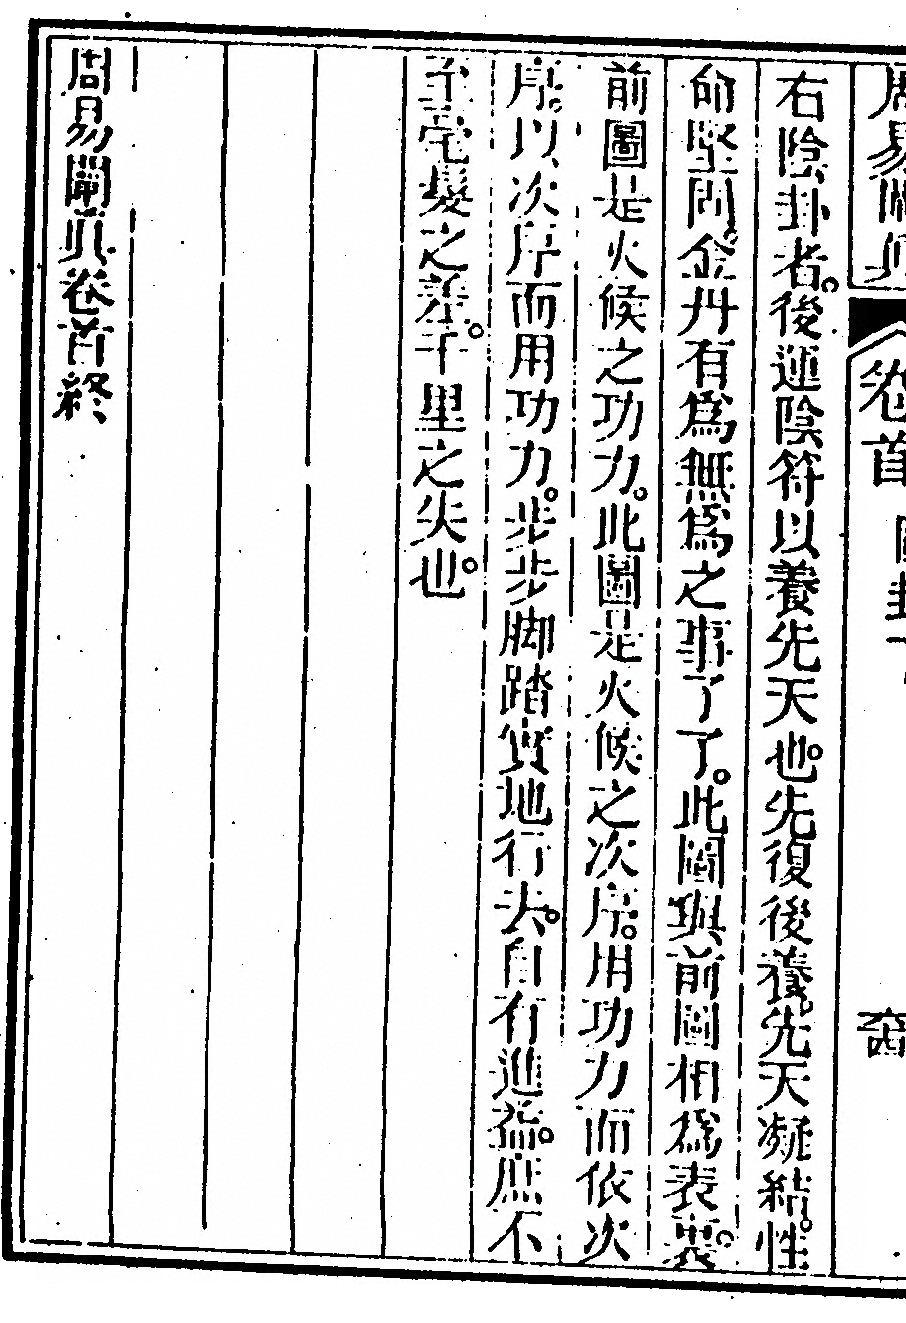 周易闡真
卷首
六四
右陰卦者。後運陰符以養先天也。先復後養。先天凝結。性
命堅固。金丹有爲無爲之事了了。此圖與前圖相爲表裏。
前圖是火候之功力。此圖是火候之次序。用功力而依次
序。以次序而用功力。步步脚踏實地行去。自有進益。庶不
至毫髮之差。千里之失也。
周易闡真卷首終